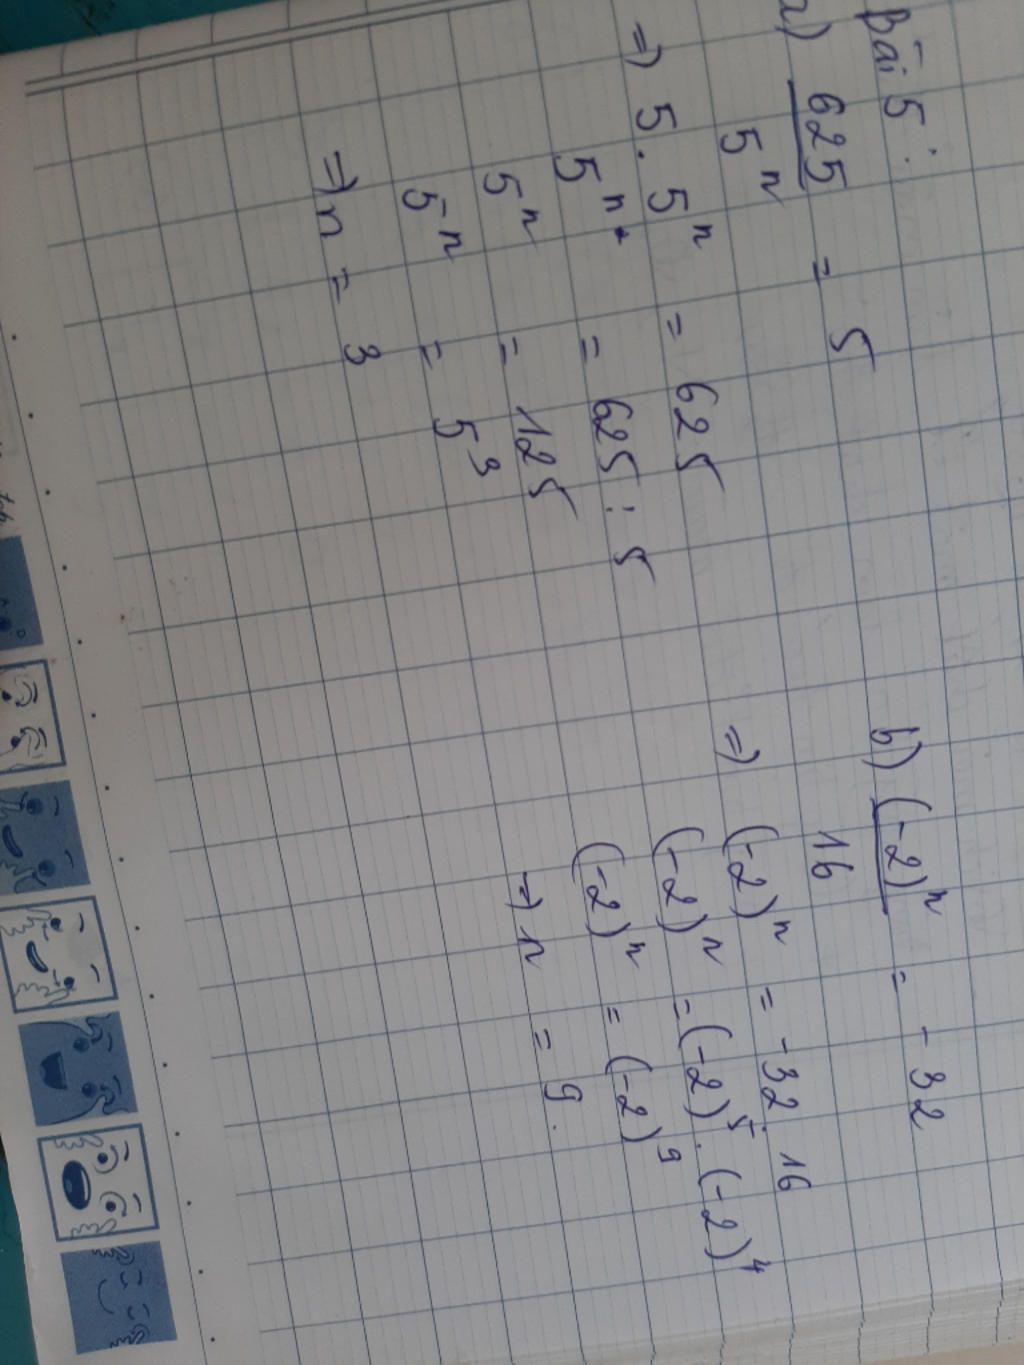 Bài 5:
a) 625/5ⁿ = 5
=) 5 . 5ⁿ = 625
5ⁿ = 625 : 5
5ⁿ = 125
5ⁿ = 5³
=) n = 3
b) (-2)ⁿ/16 = -32
=) (-2)ⁿ = -32 . 16
(-2)ⁿ = (-2)⁵ . (-2)⁴
(-2)ⁿ = (-2)⁹
=) n = 9.